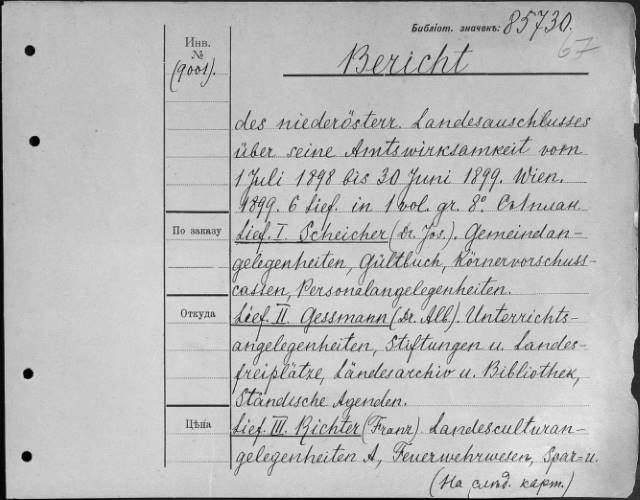 Библіот. значекъ: 85730.
67
Инв.
№
(9001).
Bericht
des niederösterr. Landesauschusses
über seine Amtswirksamkeit vom
1 Juli 1898 bis 30 Juni 1899. Wien.
1899. 6 Lief. in 1 vol. gr. 8º. Съ 1 план
По заказу
Lief. I. Scheicher (Dr. Jos.). Gemeindean-
gelegenheiten, Gültbuch, Körnervorschuss-
cassen, Personalangelegenheiten.
Откуда
Lief. II. Gessmann (Dr. Alb.). Unterrichts-
angelegenheiten, Stiftungen u. Landes-
freiplätze, Ländesarchiv u. Bibliothek,
Ständische Agenden.
Цѣна
Lief. III. Richter (Franz). Landesculturan-
gelegenheiten A, Feuerwehrwesen, Spar- u.
(На слѣд. карт.)